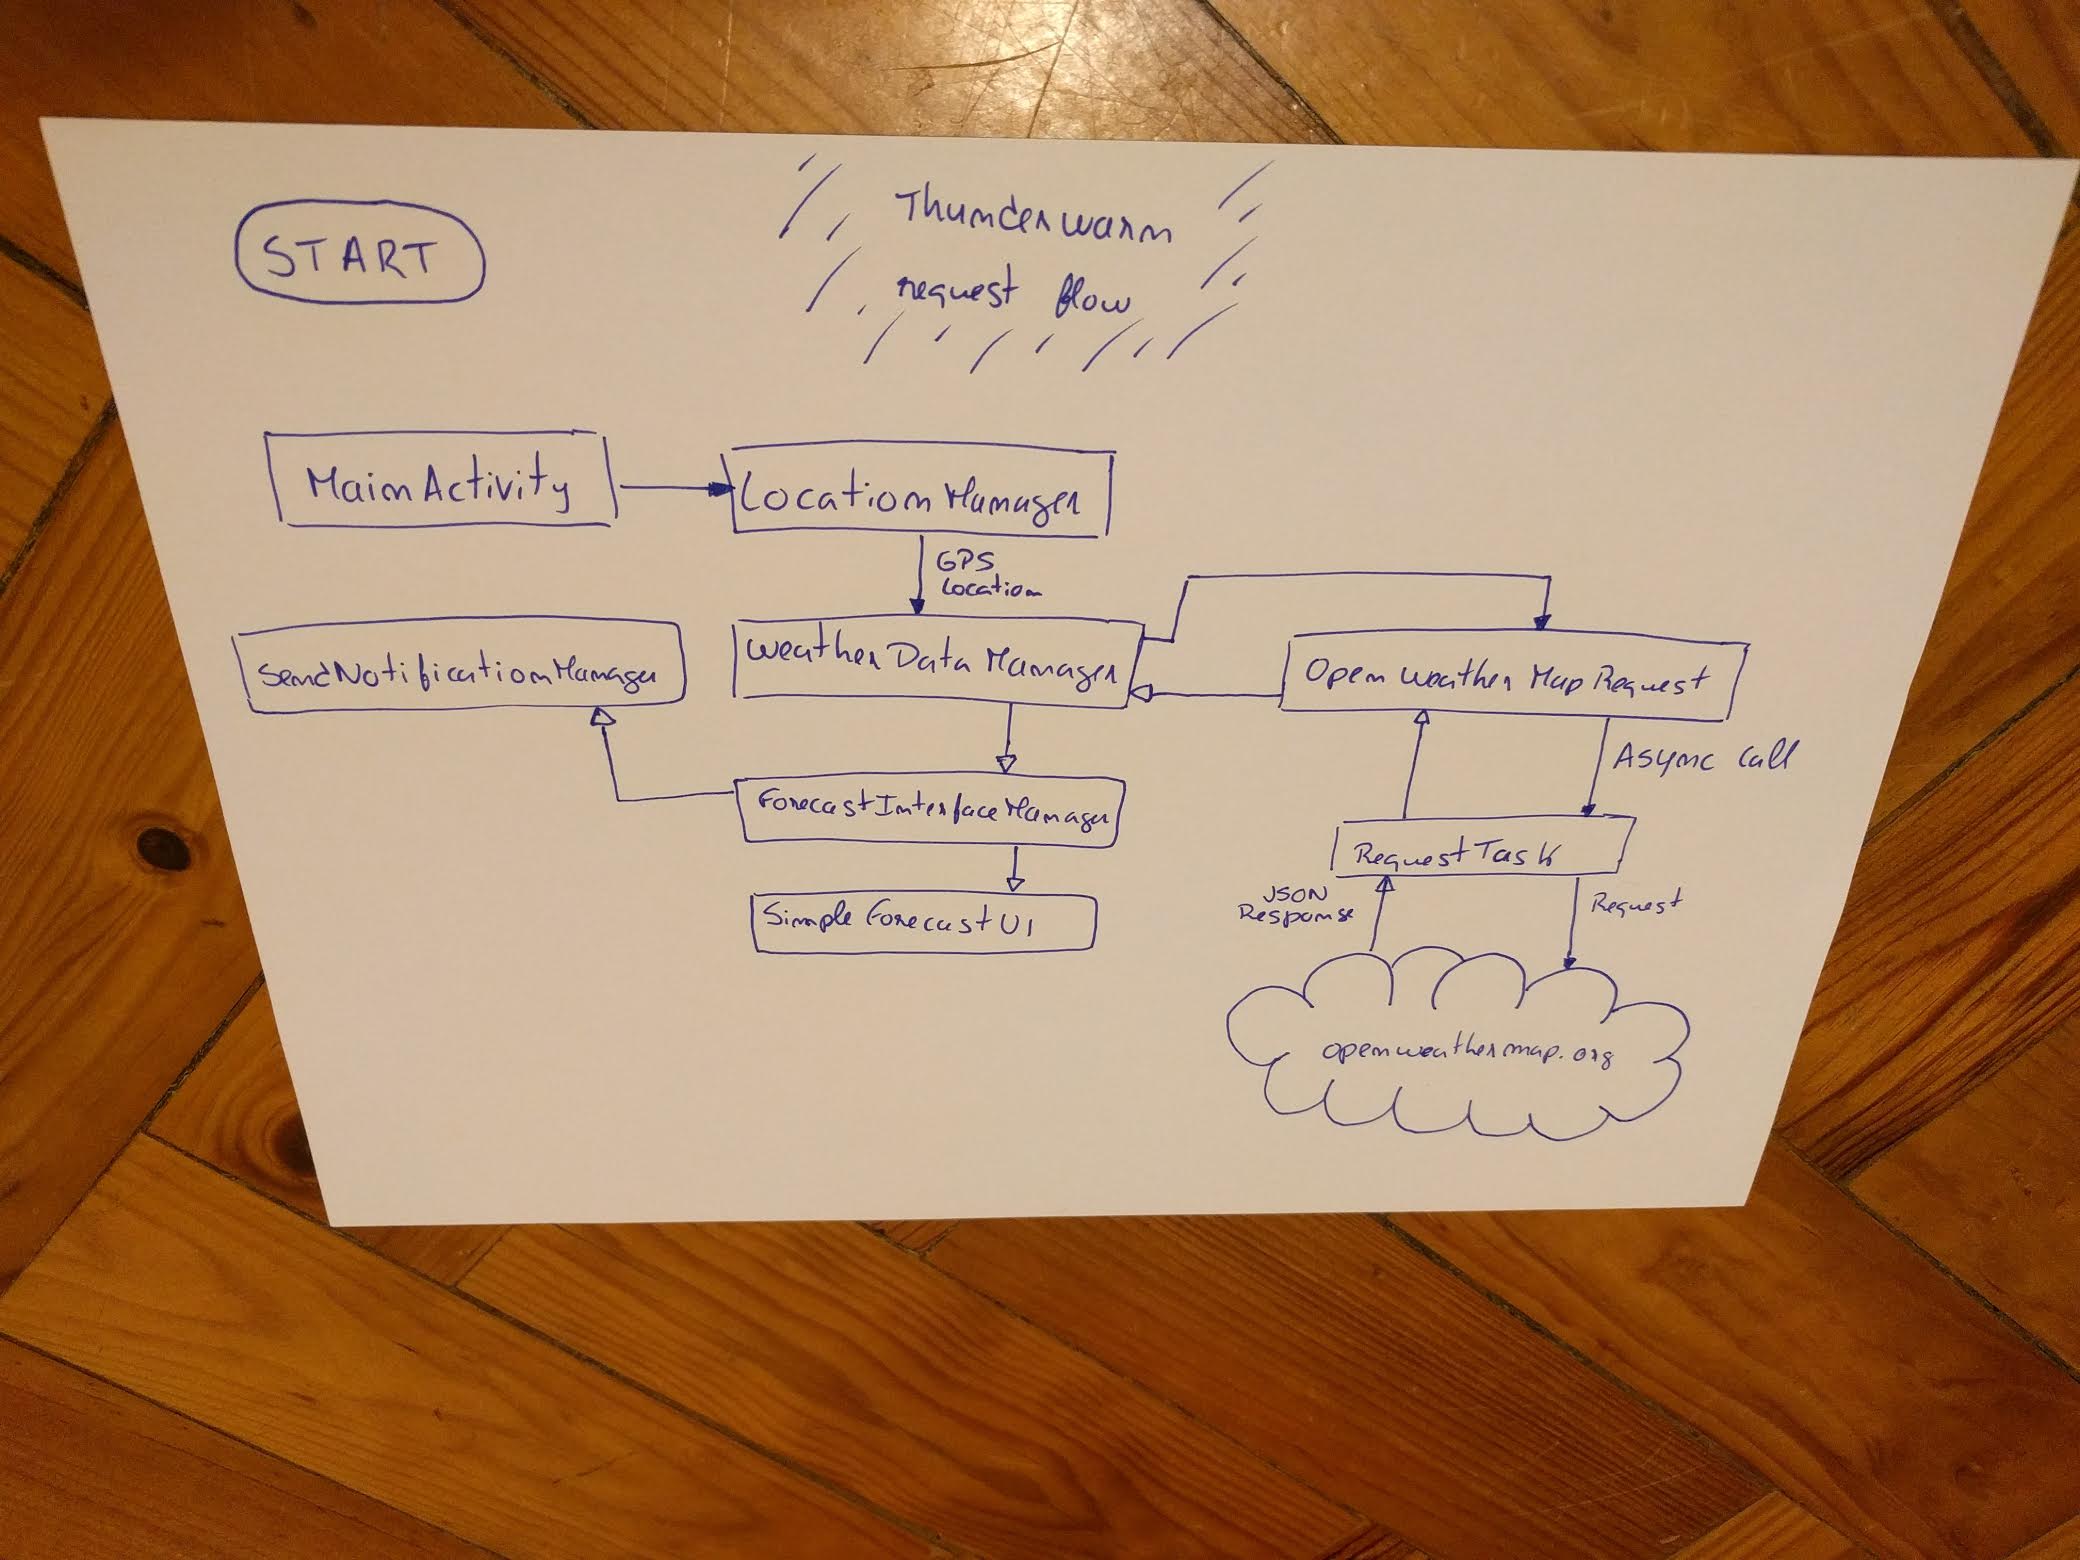 START
Thunderwarn
request flow
MainActivity
LocationManager
GPS
Location
SendNotificationManager
WeatherDataManager
OpenWeatherMapRequest
Async Call
ForecastInterfaceManager
RequestTask
JSON
Response
Request
SimpleForecastUI
openweathermap.org